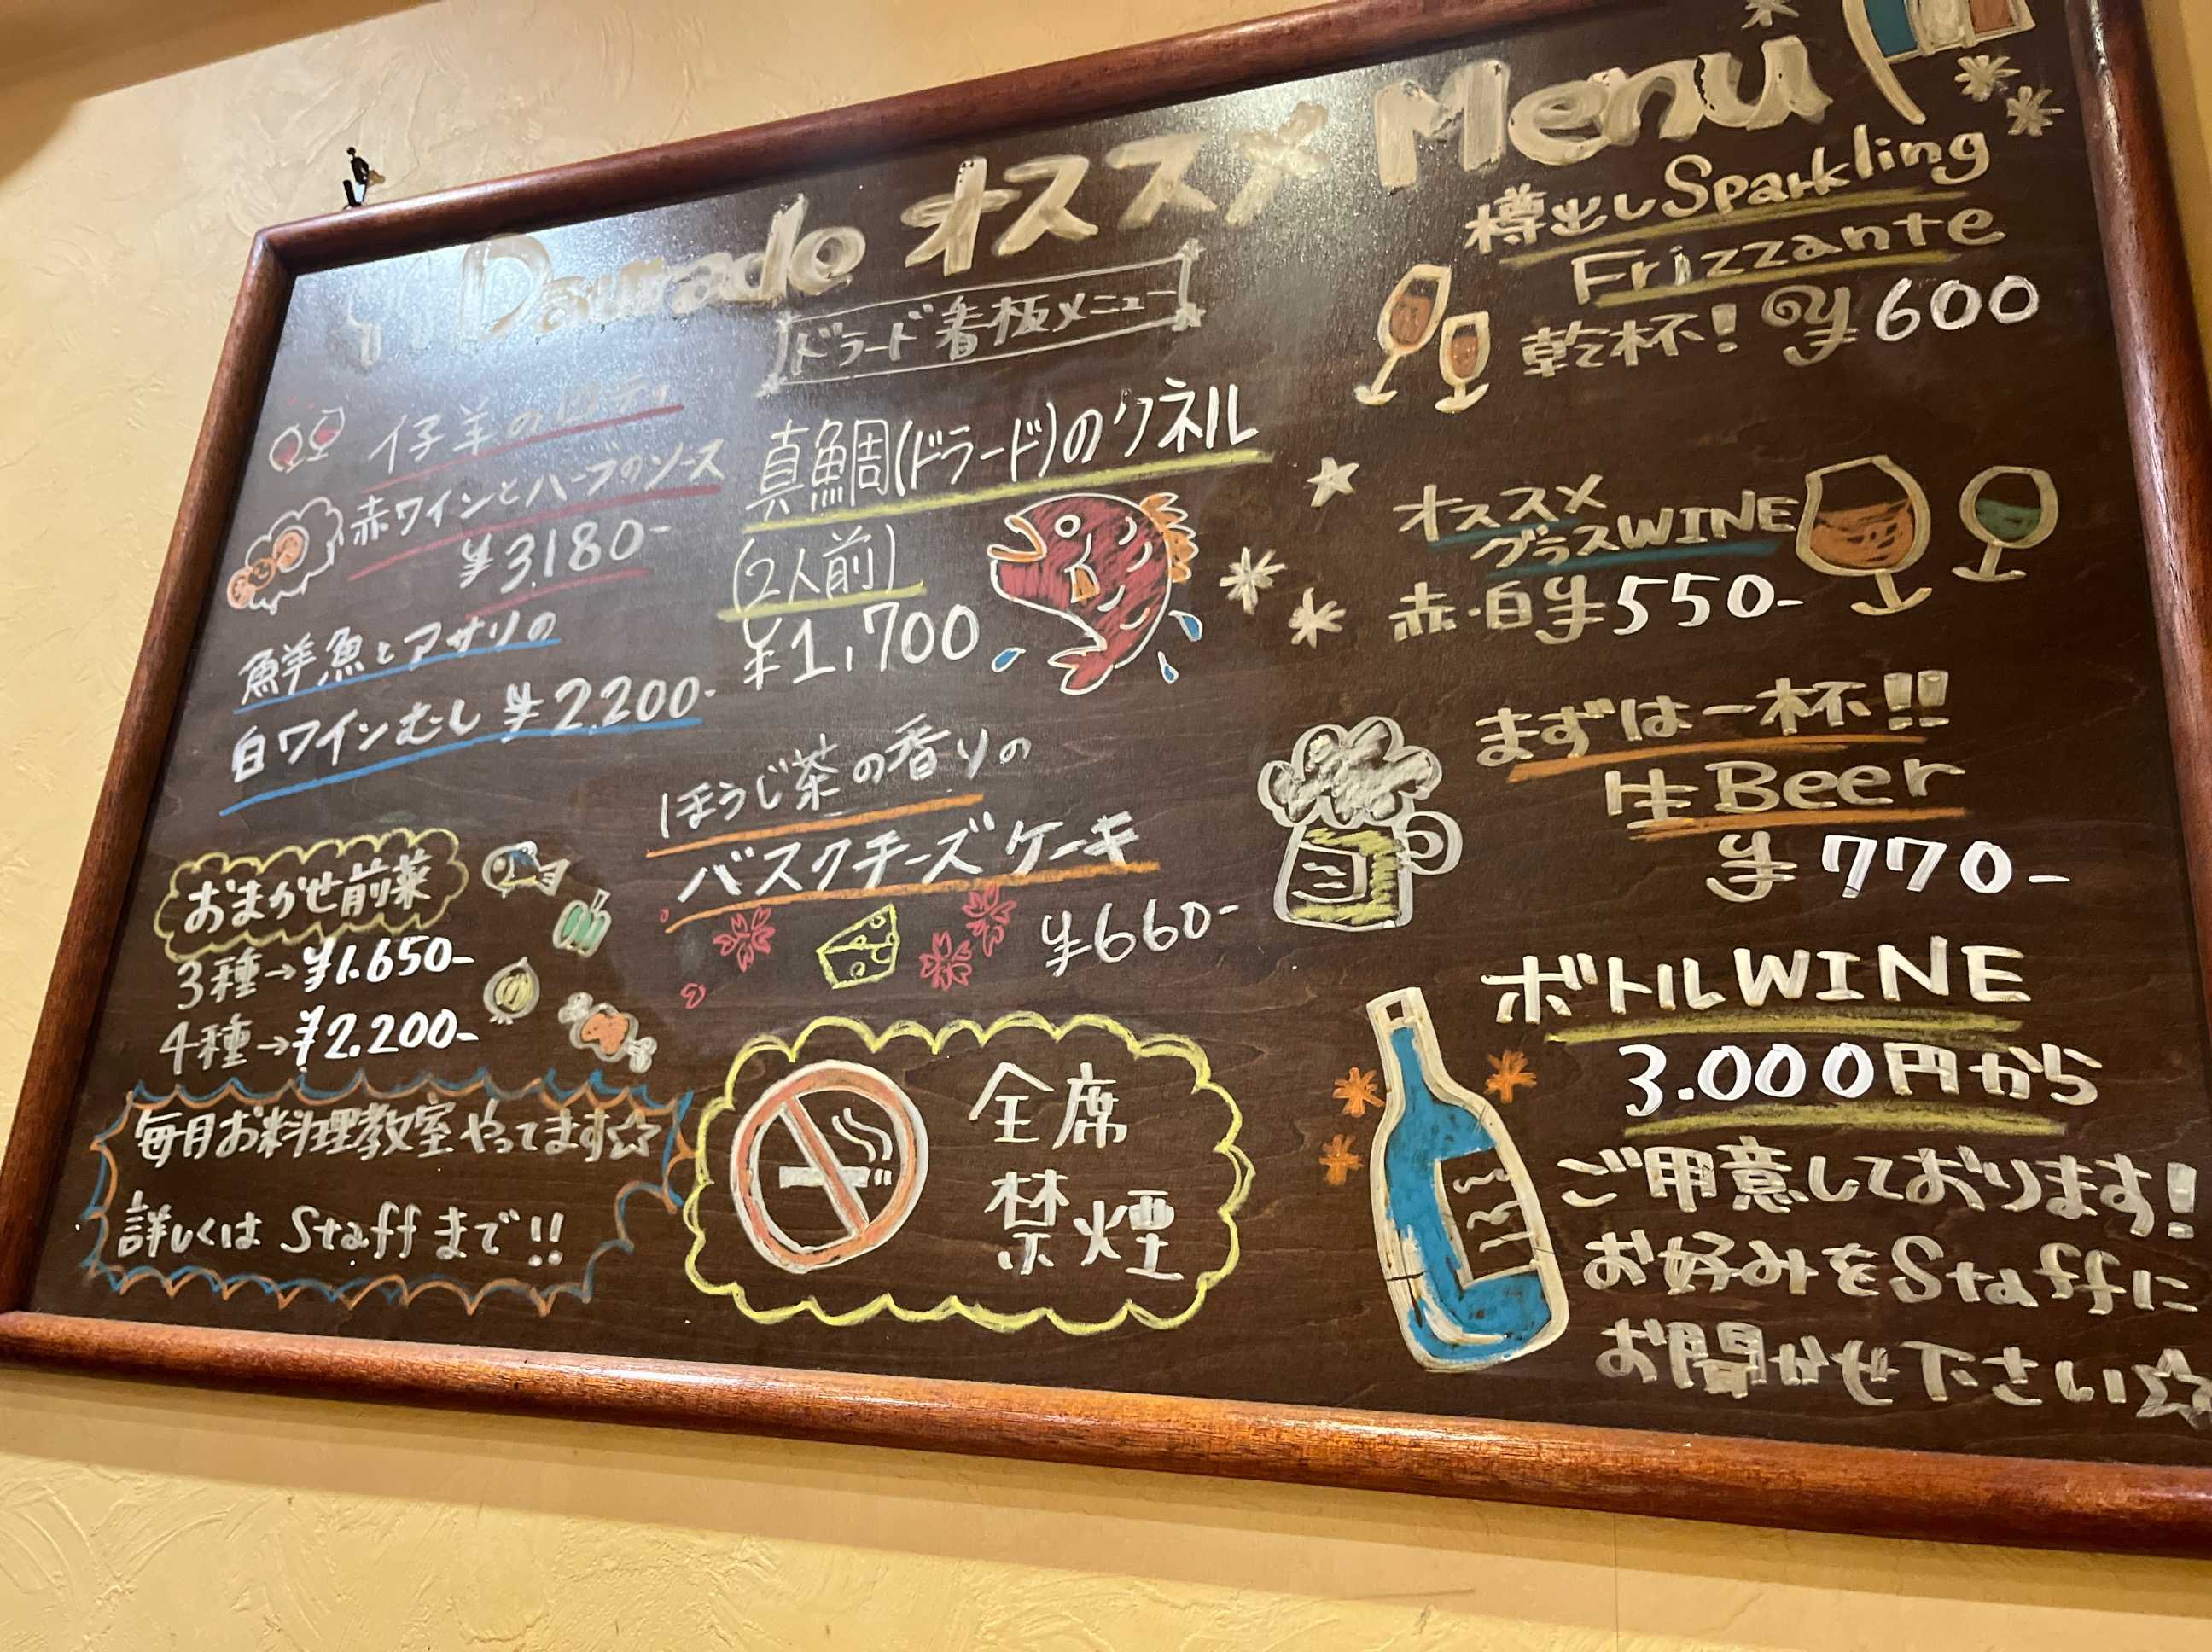 Daurade オススメ Menu
ドラード看板メニュー
仔羊のロティ
赤ワインとハーブのソース
¥3,180-
鮮魚とアサリの
白ワインむし ¥2,200-
おまかせ前菜
3種→¥1.650-
4種→¥2.200-
毎月お料理教室やってます☆
詳しくは Staffまで!!
真鯛(ドラード)のクネル
(2人前)
¥1,700
ほうじ茶の香りの
バスクチーズケーキ
¥660-
全席
禁煙
樽出しSparkling
Frizzante
乾杯! ¥600
オススメ
グラスWINE
赤・白¥550-
まずは一杯!!
生Beer
¥770-
ボトルWINE
3.000円から
ご用意しております!
お好みをStaffに
お聞かせ下さい☆